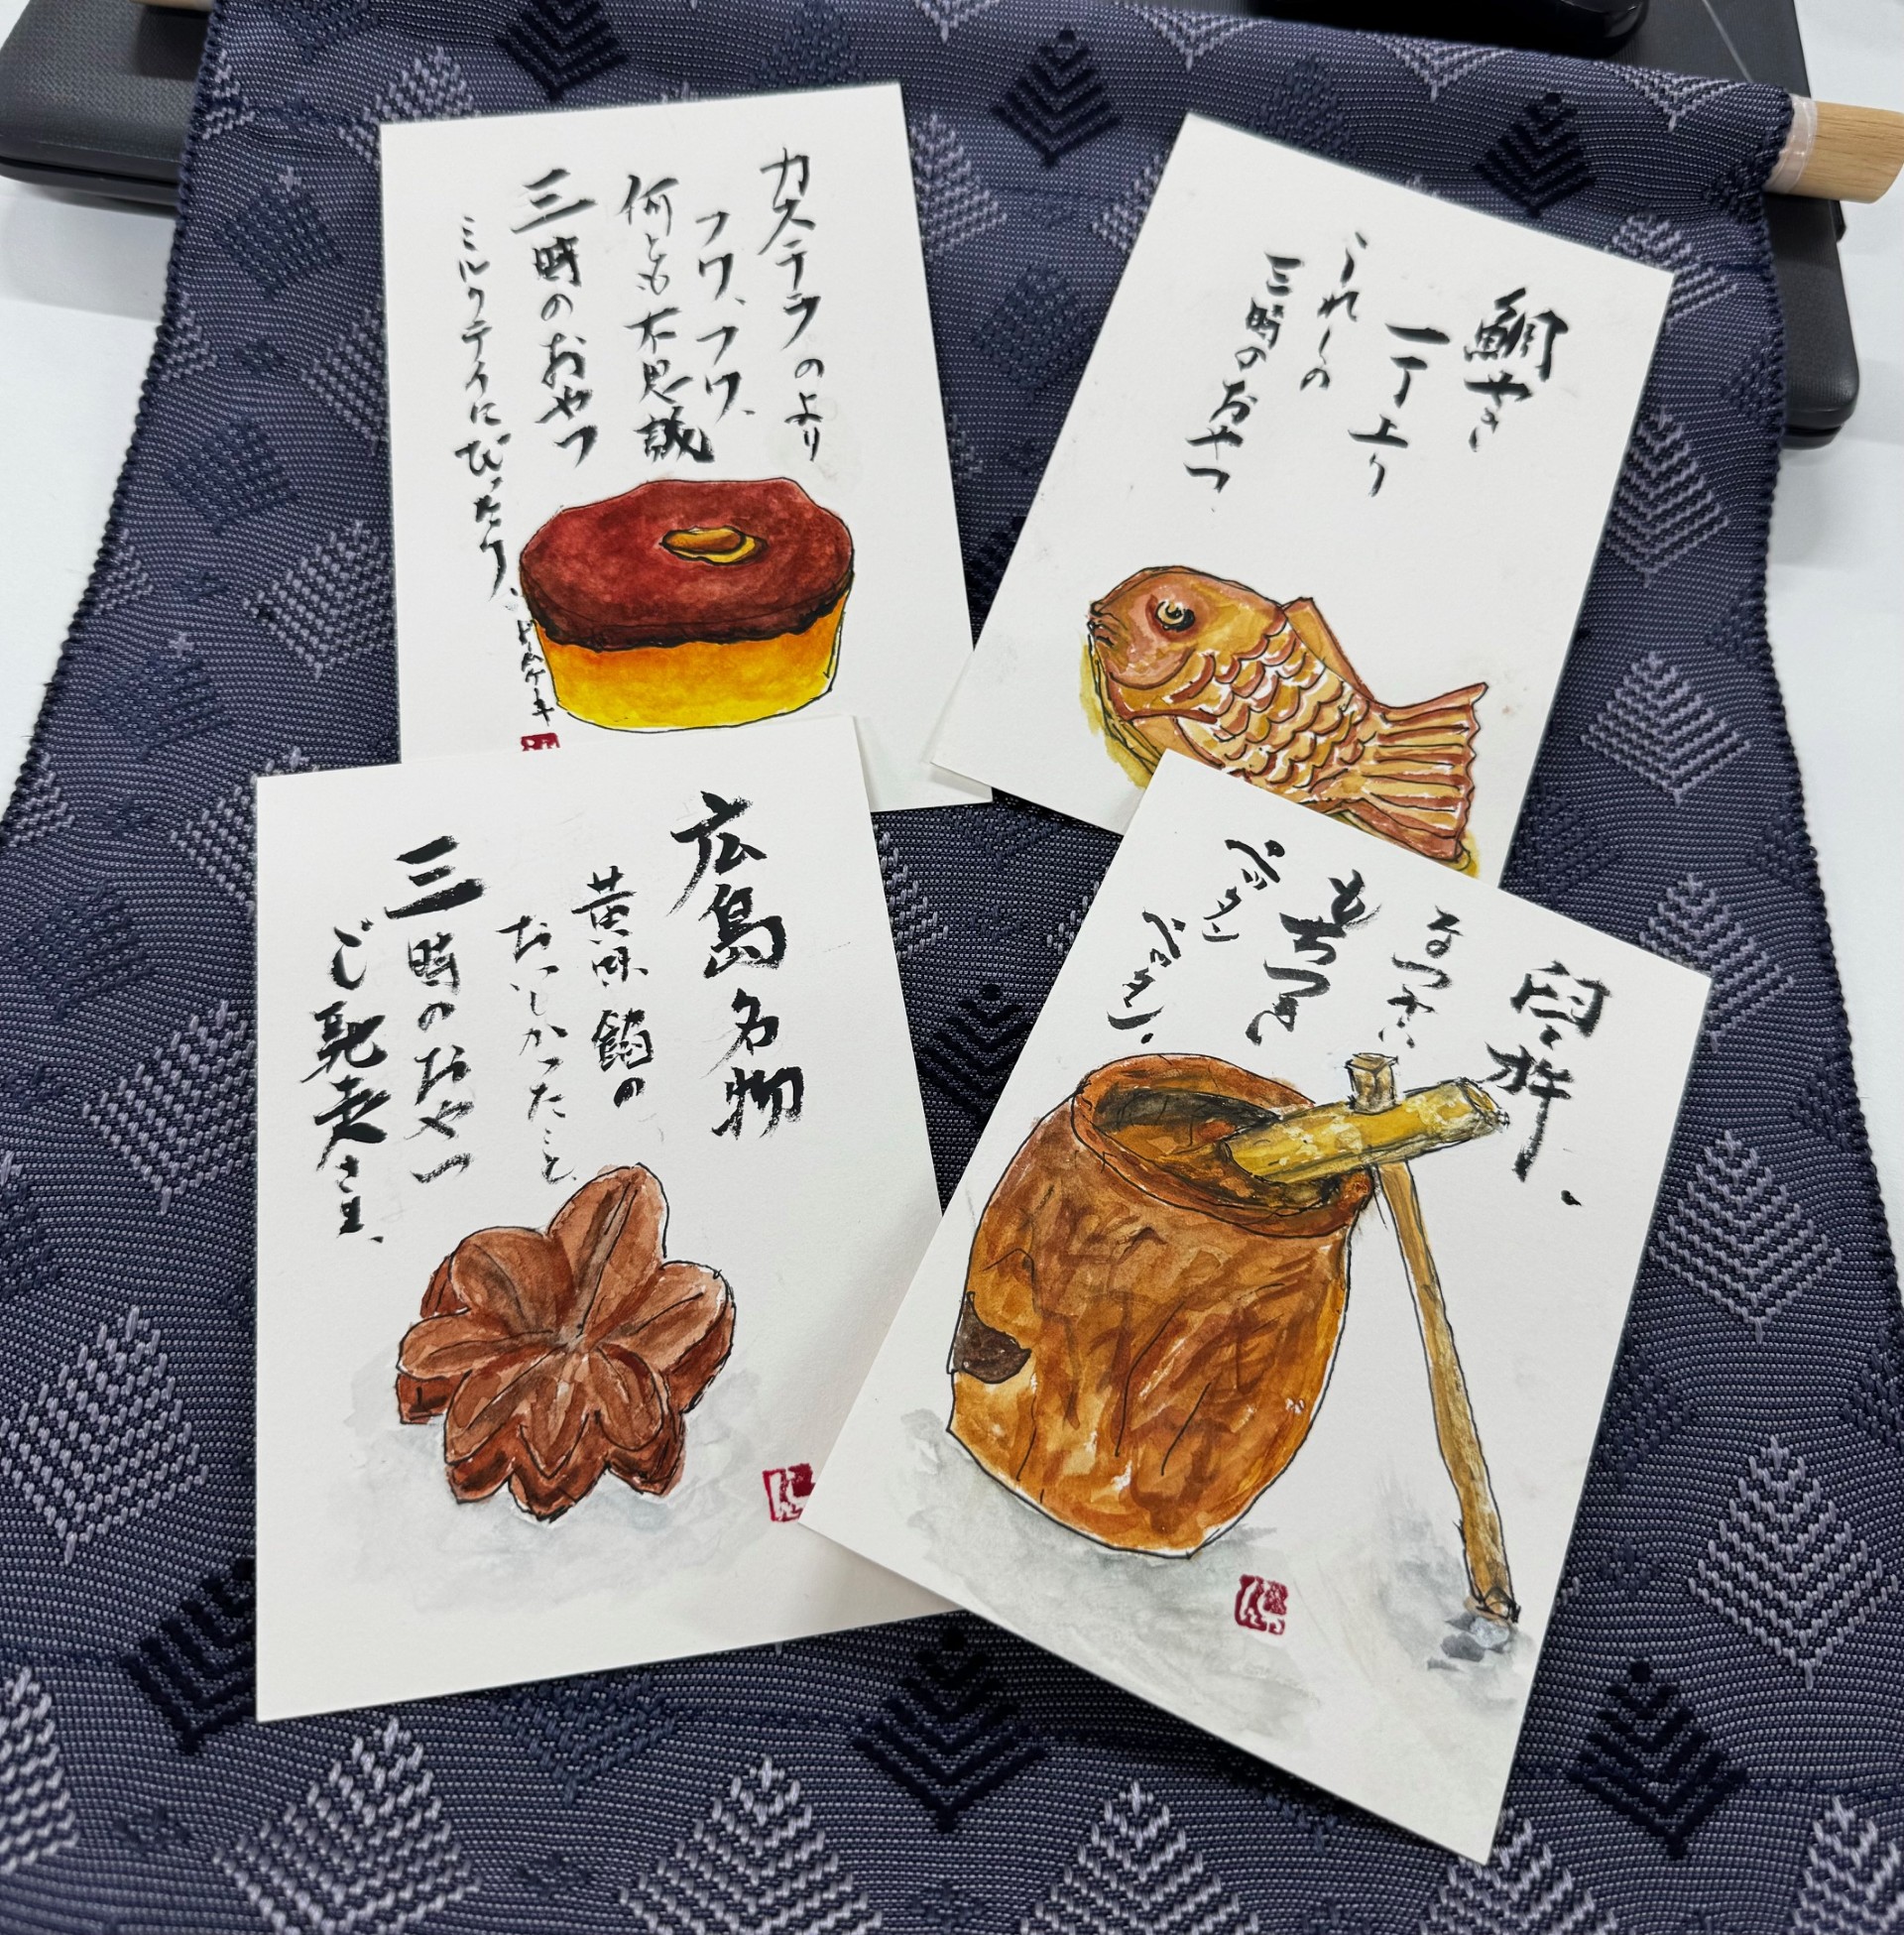 カステラのより
フワ、フワ、
何とも不思議
三時のおやつ
ミルクティにぴったり、
ドムケーキ
鯛やき
一丁上り
うれしの
三時のおやつ
広島名物
黄味餡の
おいしかったこと
三時のおやつ
ご馳走さま、
臼、杵、
なつかしい
もちつき
ペッタン
ペッタン、